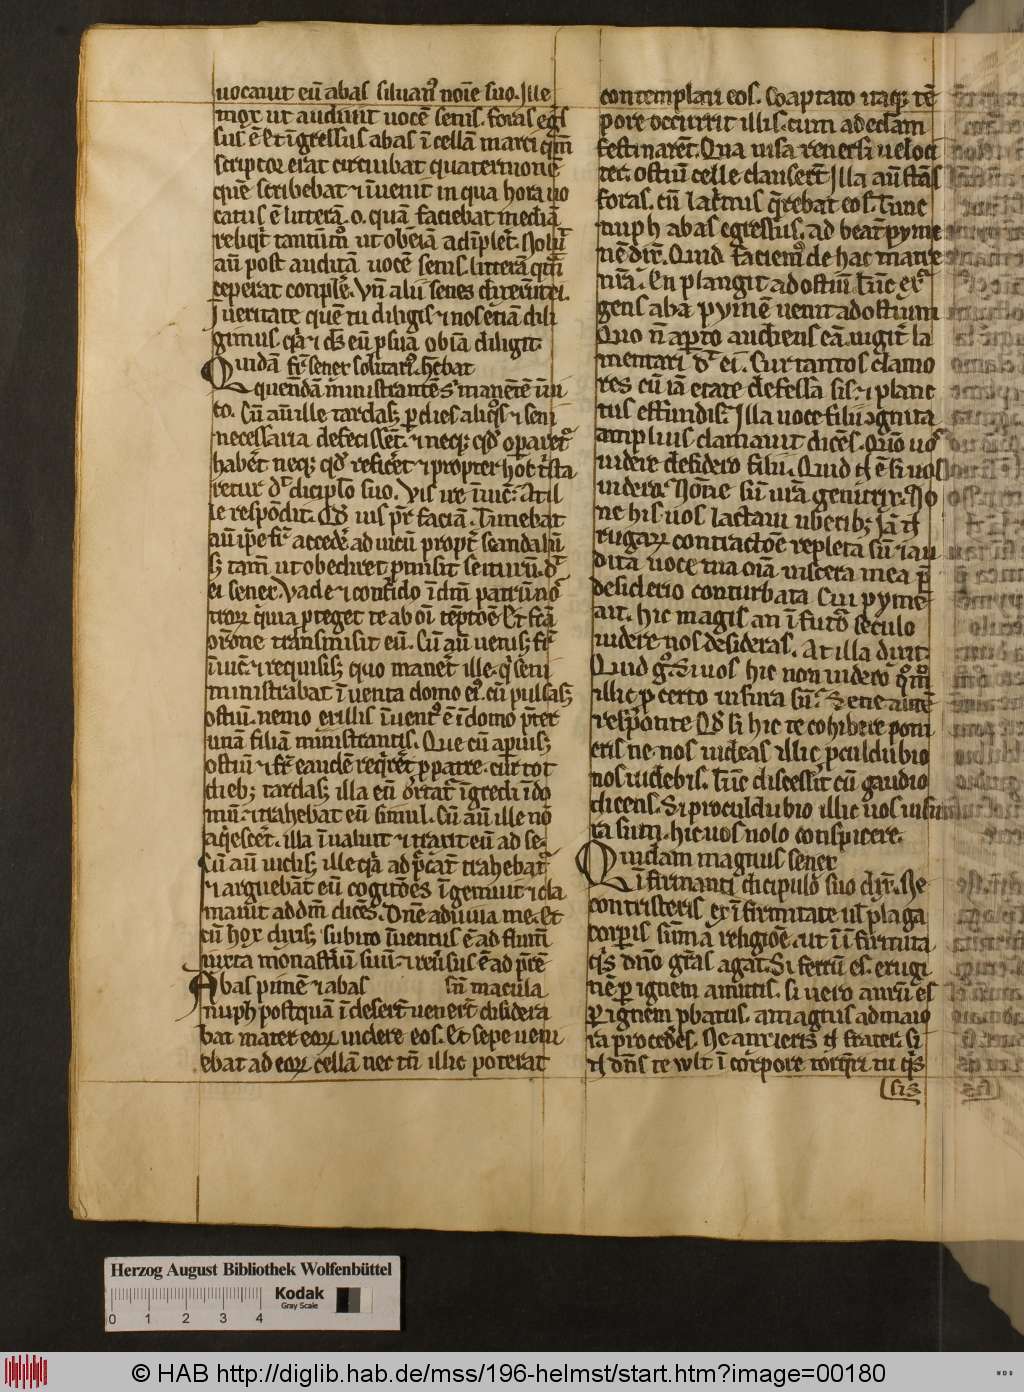 uocauit eū abas siluanꝰ noīe suo. Ille
mox ut audiuit uocē senis. foras egſ
sus ē Et īgressus abas ī cellā marci q̄m
scriptor erat circuibat quaterniōne
quē scribebat ⁊ īuenit in qua hora uo
catus ē litterā .o. quā faciebat mediā
reliqͥt tantūm̊ ut obeīā adīplet̄. Nolu͛
aū post auditā uocē senis litterā q̄m
ceperat conplē. Vn̄ alii senes dixerūt ei.
I ueritate quē tu diligis ⁊ nos etiā dili
gimus. qꝛ ⁊ dſ eū ꝓ sua obīa diligit.
Quidā fr̄ senex solitariꝰ. hēbat
quendā ministrantē sͥ manētē ī ui
co. Cū aū ille tardasꝫ ꝑ dies aliqͦs ⁊ seni
necessaria defecissēt. ⁊ neqꝫ qd̄ opararet᷑
habēt neqꝫ qd̄ reficēt ⁊ propter hoc t̄sta
retur dͬ diciplo suo. Vis ire ī uic̄. At il
le respōdit. Qd̄ uis pr̄ faciā. Timebat
aū ip̄e fr̄ accedē ad uicū propt̄ scandalū
sꝫ tam̄ ut obediret ꝓmisit se iturū. dͬ
ei senex. Vade ⁊ confido ī dm̄ patrū nr̄o
rum quia ꝓteget te ab oī tēptōe Et fcā
orōne transmisit eū. Cū aū uenisꝫ fr̄
ī uic̄ ⁊ requisisꝫ quo manet ille qͥ seni
ministrabat īuenta domo eiꝰ. cū pulsasꝫ
ostiū. nemo ex illis īuentꝰ ē ī domo p̄ter
unā filiā ministrantis. Que cū aperuisꝫ
ostiū ⁊ fr̄ eandē reqͥret ꝑ patre. cur tot
diebꝫ tardasꝫ illa eū ortat᷑ īgredi ī do
mū. ⁊ trahebat eū simul. Cū aū ille nō
aqͥescet. illa īualuit ⁊ traxit eū ad se.
Cū aū uidisꝫ ille qꝛ ad pc̄at᷑ trahebat᷑
⁊ arguebāt eū cogitōes īgemuit ⁊ cla
mauit ad dm̄ dicēs. Dn̄e adiuua me. Et
cū hoc dixisꝫ subito īuentus ē ad flum̄
iuxta monastīū suū. ⁊ reūsus ē ad pr̄e
Abas pimē ⁊ abas sn̄ macula
nuph postquā ī desert̄ uenert̄ desidera
bat mater eoꝝ uidere eos. Et sepe ueni
ebat ad eoꝝ cellā nec tn̄ illic poterat
contemplari eos. Coaptato itaqꝫ tē
pore occurrit illis. cum ad ecl̄am
festinarēt. Qua uisa reuersi ueloci
ter. ostiū celle clauserūt Illa aū stās
foras. cū lacrimis qͥrebat eos. Tunc
nuph abas egressus. ad beat̄ pyme
nē dix̄. Quid faciemꝰ de hac matre
nr̄a. En plangit ad ostiū. Tūc exͬ
gens aba pymē uenit ad ostium
Quo n̄ apto audiens eā. iugit̄ la
mentari dͬ ei. Cur tantos clamo
res cū iā etate defessa sis. ⁊ planc
tus effundis. Illa uoce filii ꝯgnita
amplius clamauit dicēs. Qm̄ uoſ
uidere desidero filii. Quid .n. ē si uos
uidera. Nōne sū ur̄a genitrix. No
ne his uos lactaui uberibꝫ Iā .n.
rugaꝝ contractōe repleta sū ⁊ au
dita uoce tua oīa uiscera mea p̄
desiderio conturbata Cui pyme
ait. Hic magis an ī futo seculo
uidere nos desideras. At illa dixit.
Quid gͦ. Si uos hic non uidero qm̄
illic ꝓ certo uisura sū? Sene autē
respōnte Qd̄ si hic te cohibere pote
ris ne nos uideas illic ꝓculdubio
nos uidebis. Tūc discessit cū gaudio
dicens. Si proculdubio illic uos uisu
ra sum. hic uos nolo conspicere.
Quidam magnus senex
īfirmanti dicipulo suo dix̄. Ne
contristeris ex īfirmitate ul̓ plaga
corporis sūma religiōe ē. ut ī īfirmita
qͥs dn̄o gr̄as agat. Si ferrū es. erugi
nē ꝑ ignem amittis. si uero aurū es
ꝑ ignem ꝓbatus. a magnis ad maio
ra procedes. Ne anxieris .n. frater. si
.n. dn̄s te uult ī corpore torqͥri tu qͥs
sis
Herzog August Bibliothek Wolfenbüttel
Kodak
Gray Scale
0 1 2 3 4
© HAB http://diglib.hab.de/mss/196-helmst/start.htm?image=00180